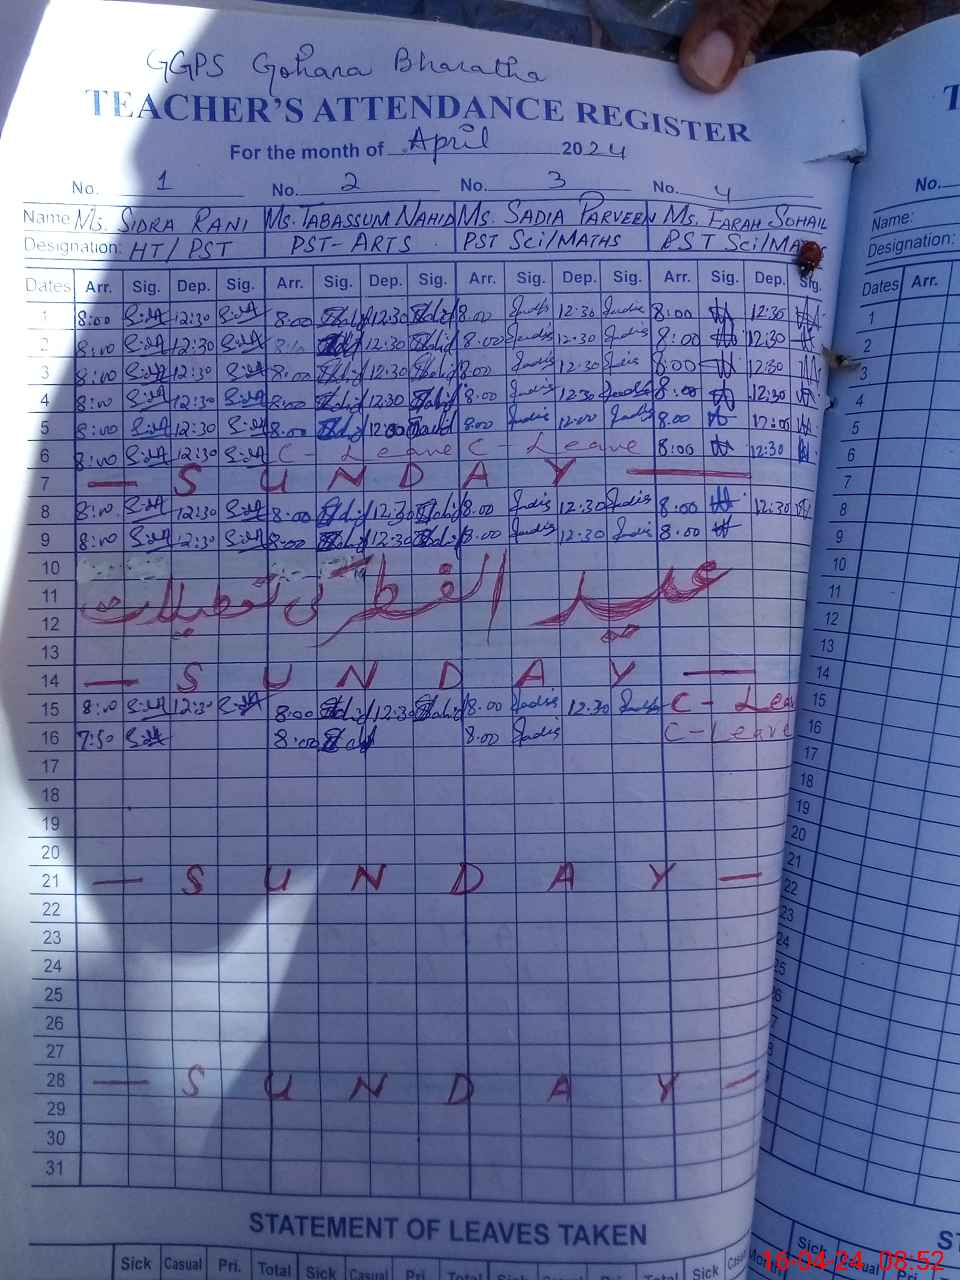 GGPS Gohana Bharatha
TEACHER'S ATTENDANCE REGISTER
For the month of April 2024
No. 1 No. 2 No. 3 No. 4
Name Ms. SIDRA RANI Ms. TABASSUM NAHID Ms. SADIA PARVEEN Ms. FARAH SOHAIL
Designation: HT/PST PST-ARTS PST Sci/MATHS PST Sci/MA
Dates Arr. Sig. Dep. Sig. Arr. Sig. Dep. Sig. Arr. Sig. Dep. Sig. Arr. Sig. Dep. Sig.
1 8:00 12:30 8:00 12:30 8:00 Sadia 12:30 Sadia 8:00 12:30
2 8:00 12:30 12:30 8:00 Sadia 12:30 Sadia 8:00 12:30
3 8:00 12:30 8:00 12:30 8:00 Sadia 12:30 Sadia 8:00 12:30
4 8:00 12:30 8:00 12:30 8:00 Sadia 12:30 Sadia 8:00 12:30
5 8:00 12:30 8:00 12:00 8:00 Sadia 12:00 Sadia 8:00 12:00
6 8:00 12:30 C - Leave C - Leave 8:00 12:30
7 — S U N D A Y —
8 8:00 12:30 8:00 12:30 8:00 Sadia 12:30 Sadia 8:00 12:30
9 8:00 12:30 8:00 12:30 8:00 Sadia 12:30 Sadia 8:00
10
11 عید الفطر کی تعطیلات
12
13
14 — S U N D A Y —
15 8:00 12:30 8:00 12:30 8:00 Sadia 12:30 Sadia C - Lea
16 7:50 8:00 8:00 Sadia C - Leave
17
18
19
20
21 — S U N D A Y —
22
23
24
25
26
27
28 — S U N D A Y —
29
30
31
STATEMENT OF LEAVES TAKEN
Sick Casual Pri. Total Sick Casual Pri. Total Sick Casual Pri. Total Sick
No.
Name:
Designation:
Dates Arr.
1
2
3
4
5
6
7
8
9
10
11
12
13
14
15
16
17
18
19
20
21
22
23
24
25
Sick Casual Pri.
16-04-24 08:52